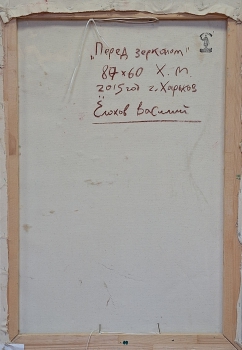 „Перед зеркалом"
87×60 Х.М.
2015год г.Харьков
Ёлохов Василий